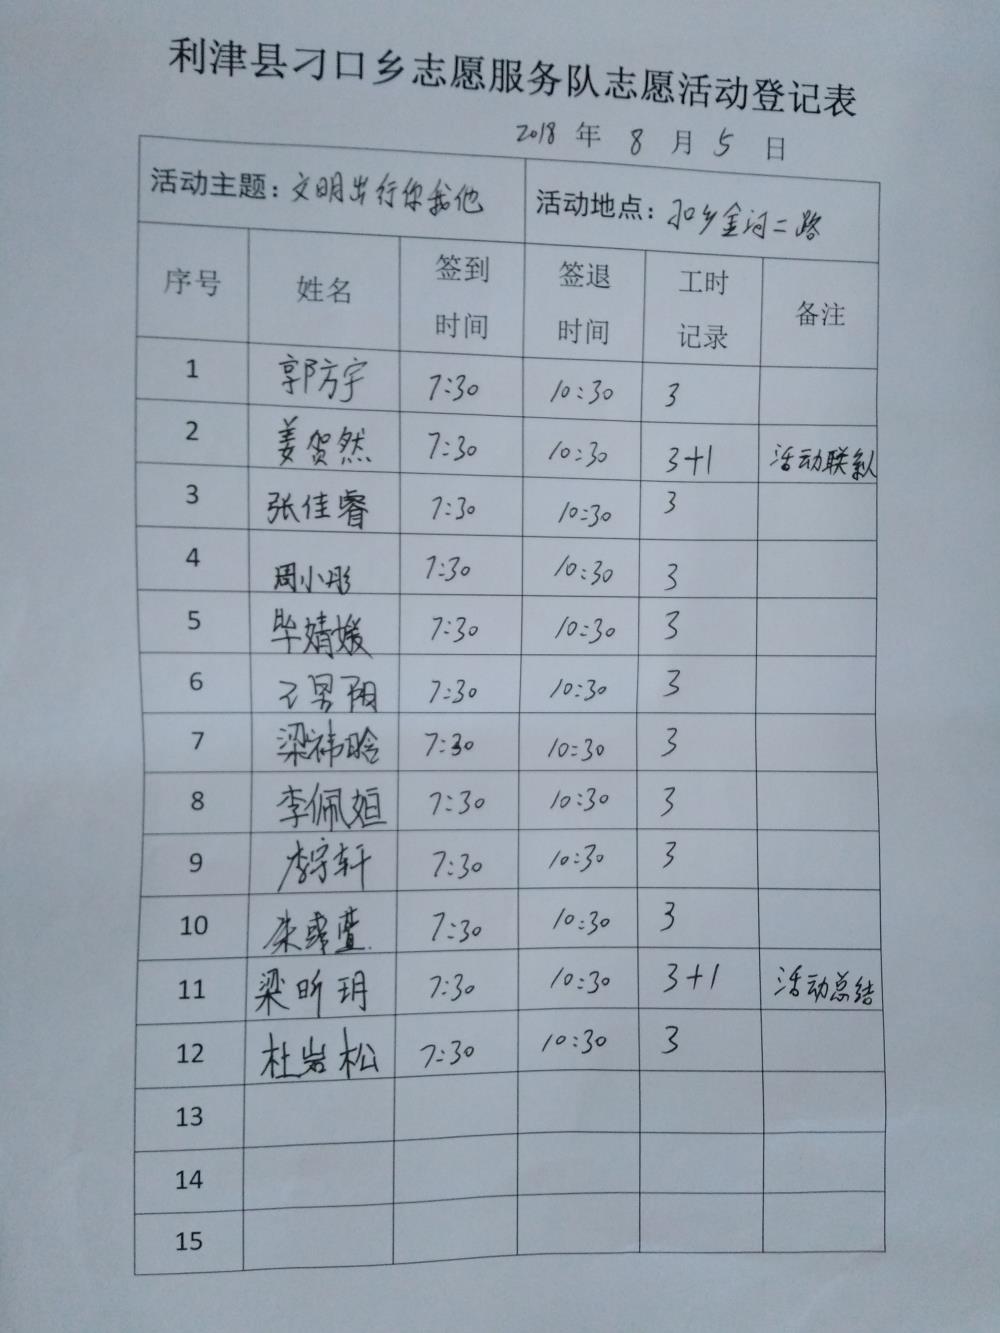 利津县刁口乡志愿服务队志愿活动登记表
2018 年 8 月 5 日
活动主题：文明出行你我他 活动地点：刁口乡金河二路
序号 姓名 签到时间 签退时间 工时记录 备注
1 郭方宇 7:30 10:30 3
2 姜贺然 7:30 10:30 3+1 活动联系人
3 张佳睿 7:30 10:30 3
4 周小彤 7:30 10:30 3
5 毕婧媛 7:30 10:30 3
6 王昊阳 7:30 10:30 3
7 梁祎晗 7:30 10:30 3
8 李佩姮 7:30 10:30 3
9 李宇轩 7:30 10:30 3
10 7:30 10:30 3
11 梁昕玥 7:30 10:30 3+1 活动总结
12 杜岩松 7:30 10:30 3
13
14
15